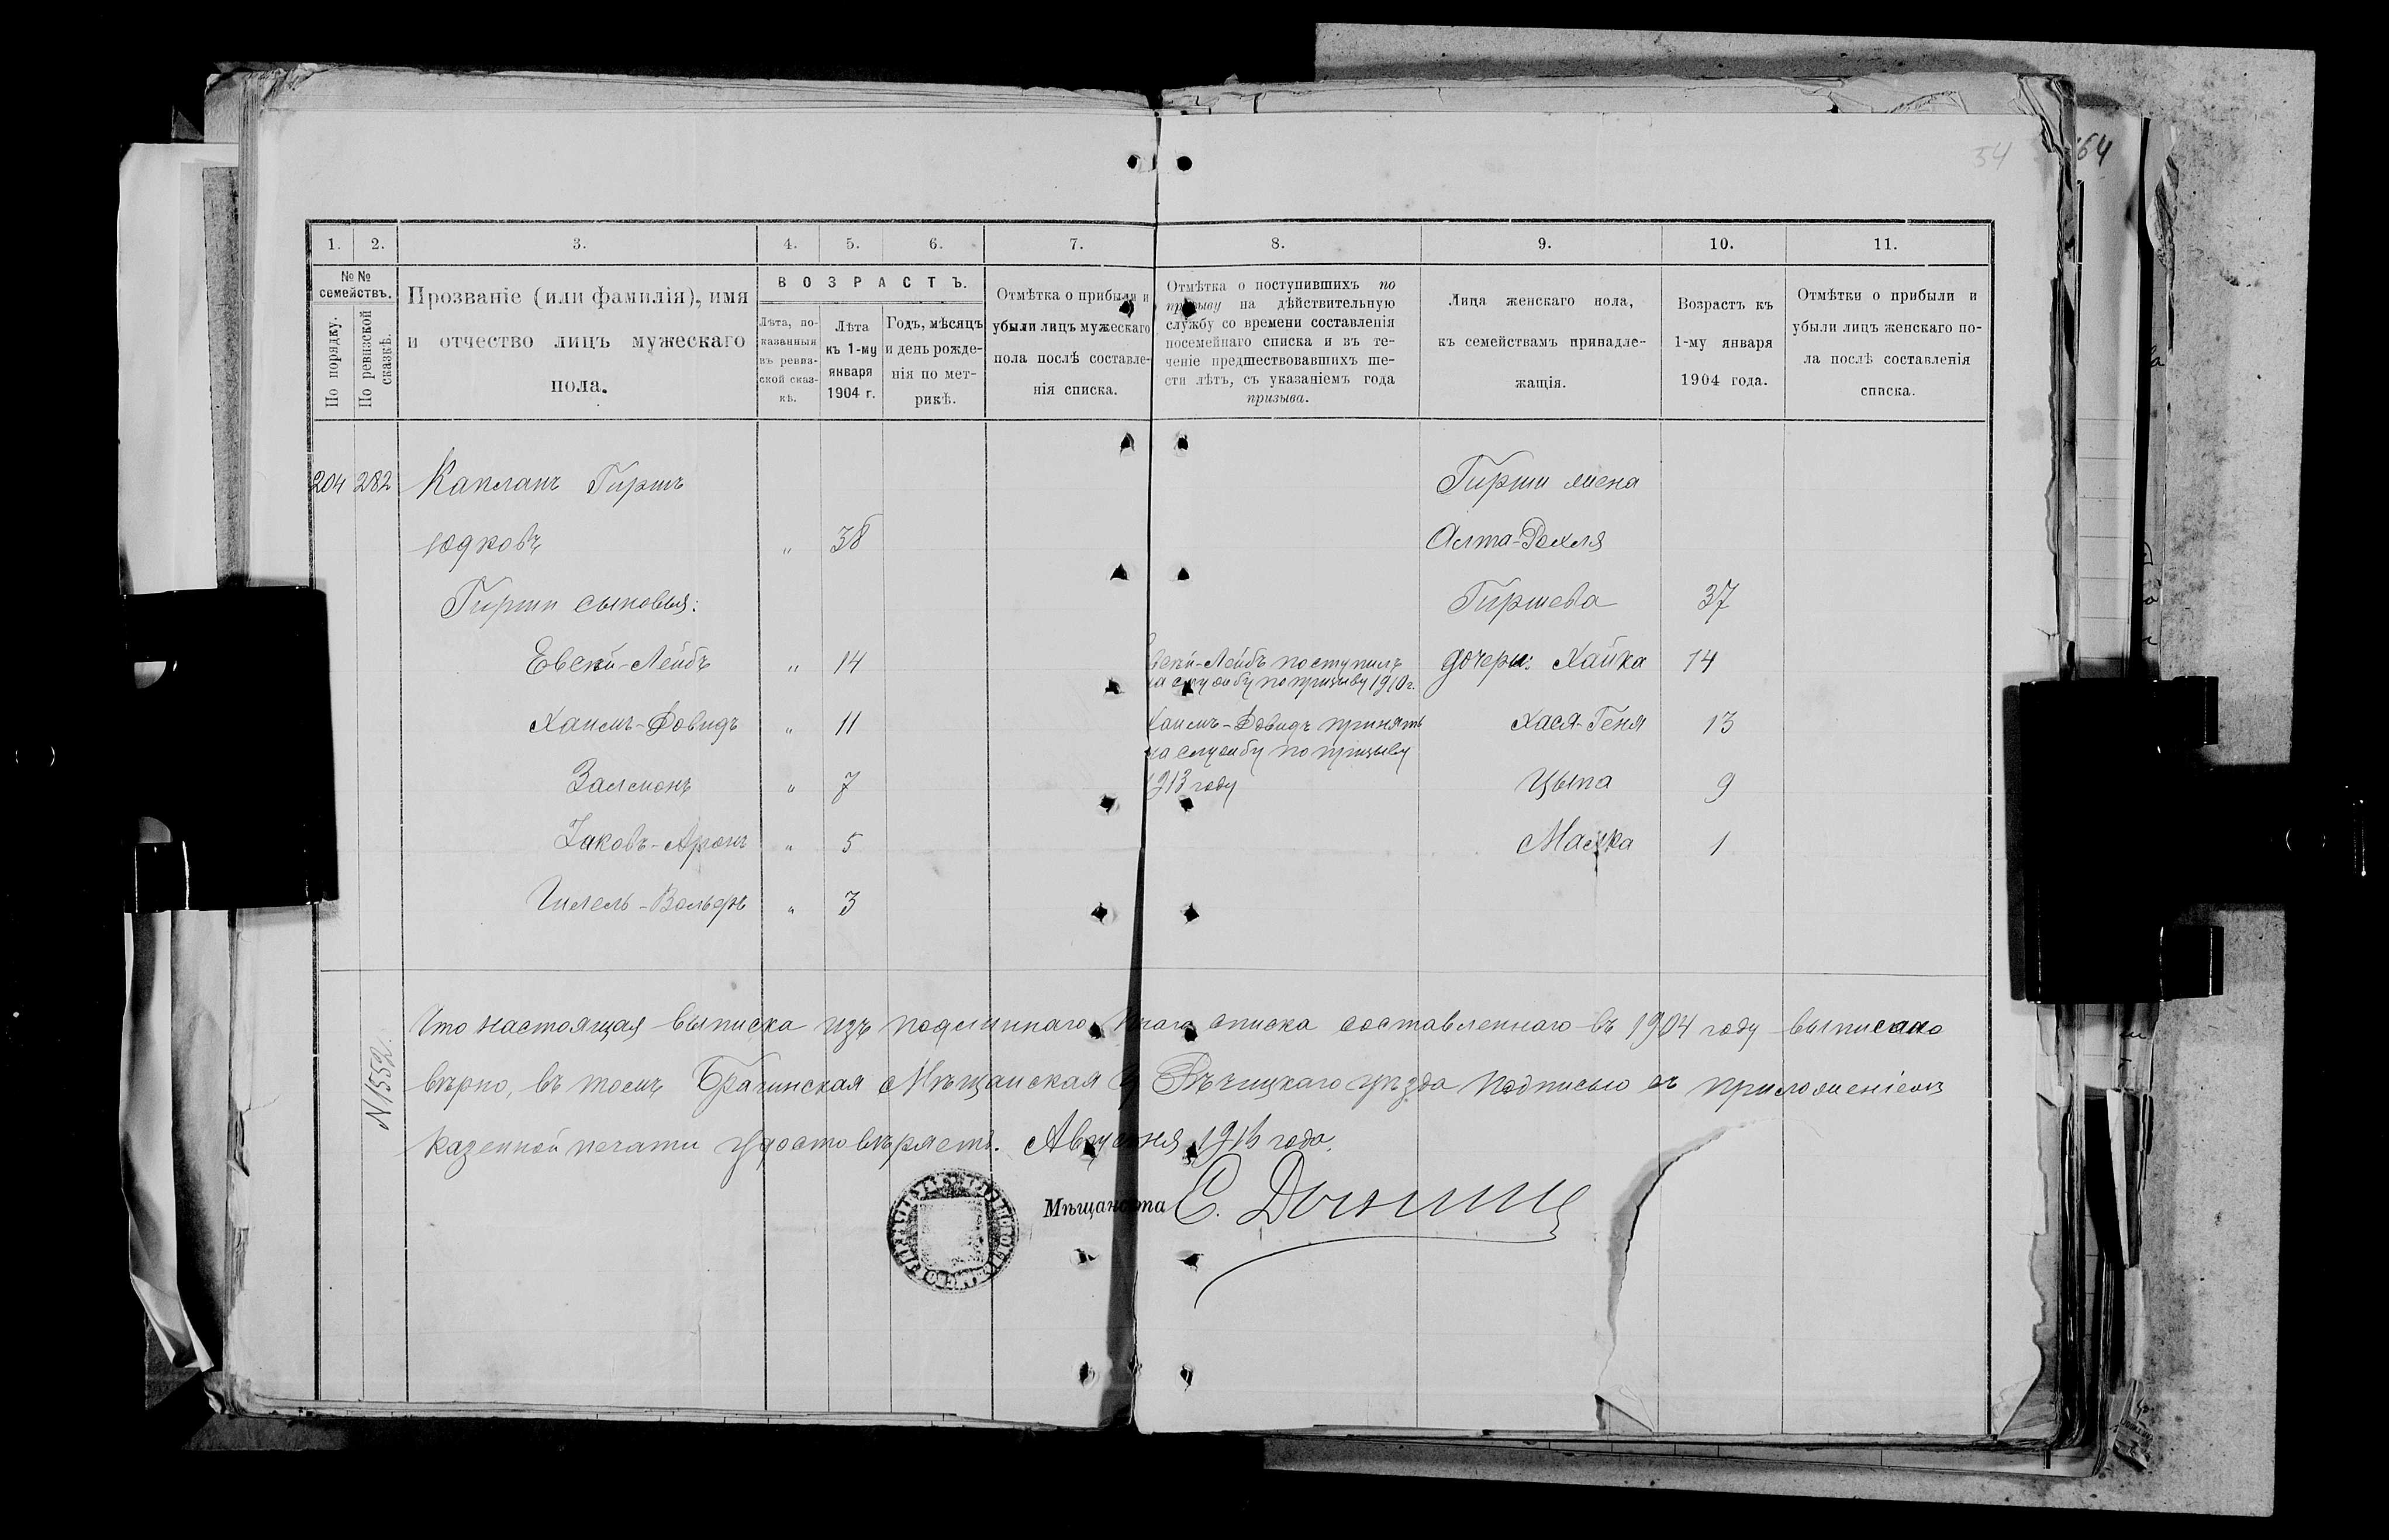 54
64
1. 2. 3. 4. 5. 6. 7. 8. 9. 10. 11.
№№ семействъ.
По порядку.
По ревизской сказкѣ.
Прозваніе (или фамилія), имя
и отчество лицъ мужескаго
пола.
ВОЗРАСТЪ.
Лѣта, по-
казанныя
въ ревиз-
ской сказ-
кѣ.
Лѣта
къ 1-му
января
1904 г.
Годъ, мѣсяцъ
и день рожде-
нія по мет-
рикѣ.
Отмѣтка о прибыли и
убыли лицъ мужескаго
пола послѣ составле-
нія списка.
Отмѣтка о поступившихъ по
призыву на дѣйствительную
службу со времени составленія
посемейнаго списка и въ те-
ченіе предшествовавшихъ ше-
сти лѣтъ, съ указаніемъ года
призыва.
Лица женскаго пола,
къ семействамъ принадле-
жащія.
Возрастъ къ
1-му января
1904 года.
Отмѣтки о прибыли и
убыли лицъ женскаго по-
ла послѣ составленія
списка.
204 282 Капланъ Гиршъ Гирши жена
Юдковъ " 38 Алта-Рохля
Гирши сыновья: Гиршева 37
Евсей-Лейбъ " 14 дочери: Хайка 14
Евсей-Лейбъ поступилъ
на службу по призыву 1910 г.
Хаимъ-Довидъ " 11 Хася-Геня 13
Хаимъ-Довидъ принятъ
на службу по призыву
1913 году
Залмонъ " 7 Цыпа 9
Іаковъ-Аронъ " 5 Малка 1
Гилель-Вольфъ " 3
Что настоящая выписка изъ подлиннаго списка составленнаго въ 1904 году выписана
вѣрно, въ томъ Брагинская Мѣщанская Рѣчицкаго уѣзда подписью и приложеніемъ
казенной печати удостовѣряетъ. Августа 1913 года.
N 1552.
Мѣщанста С.